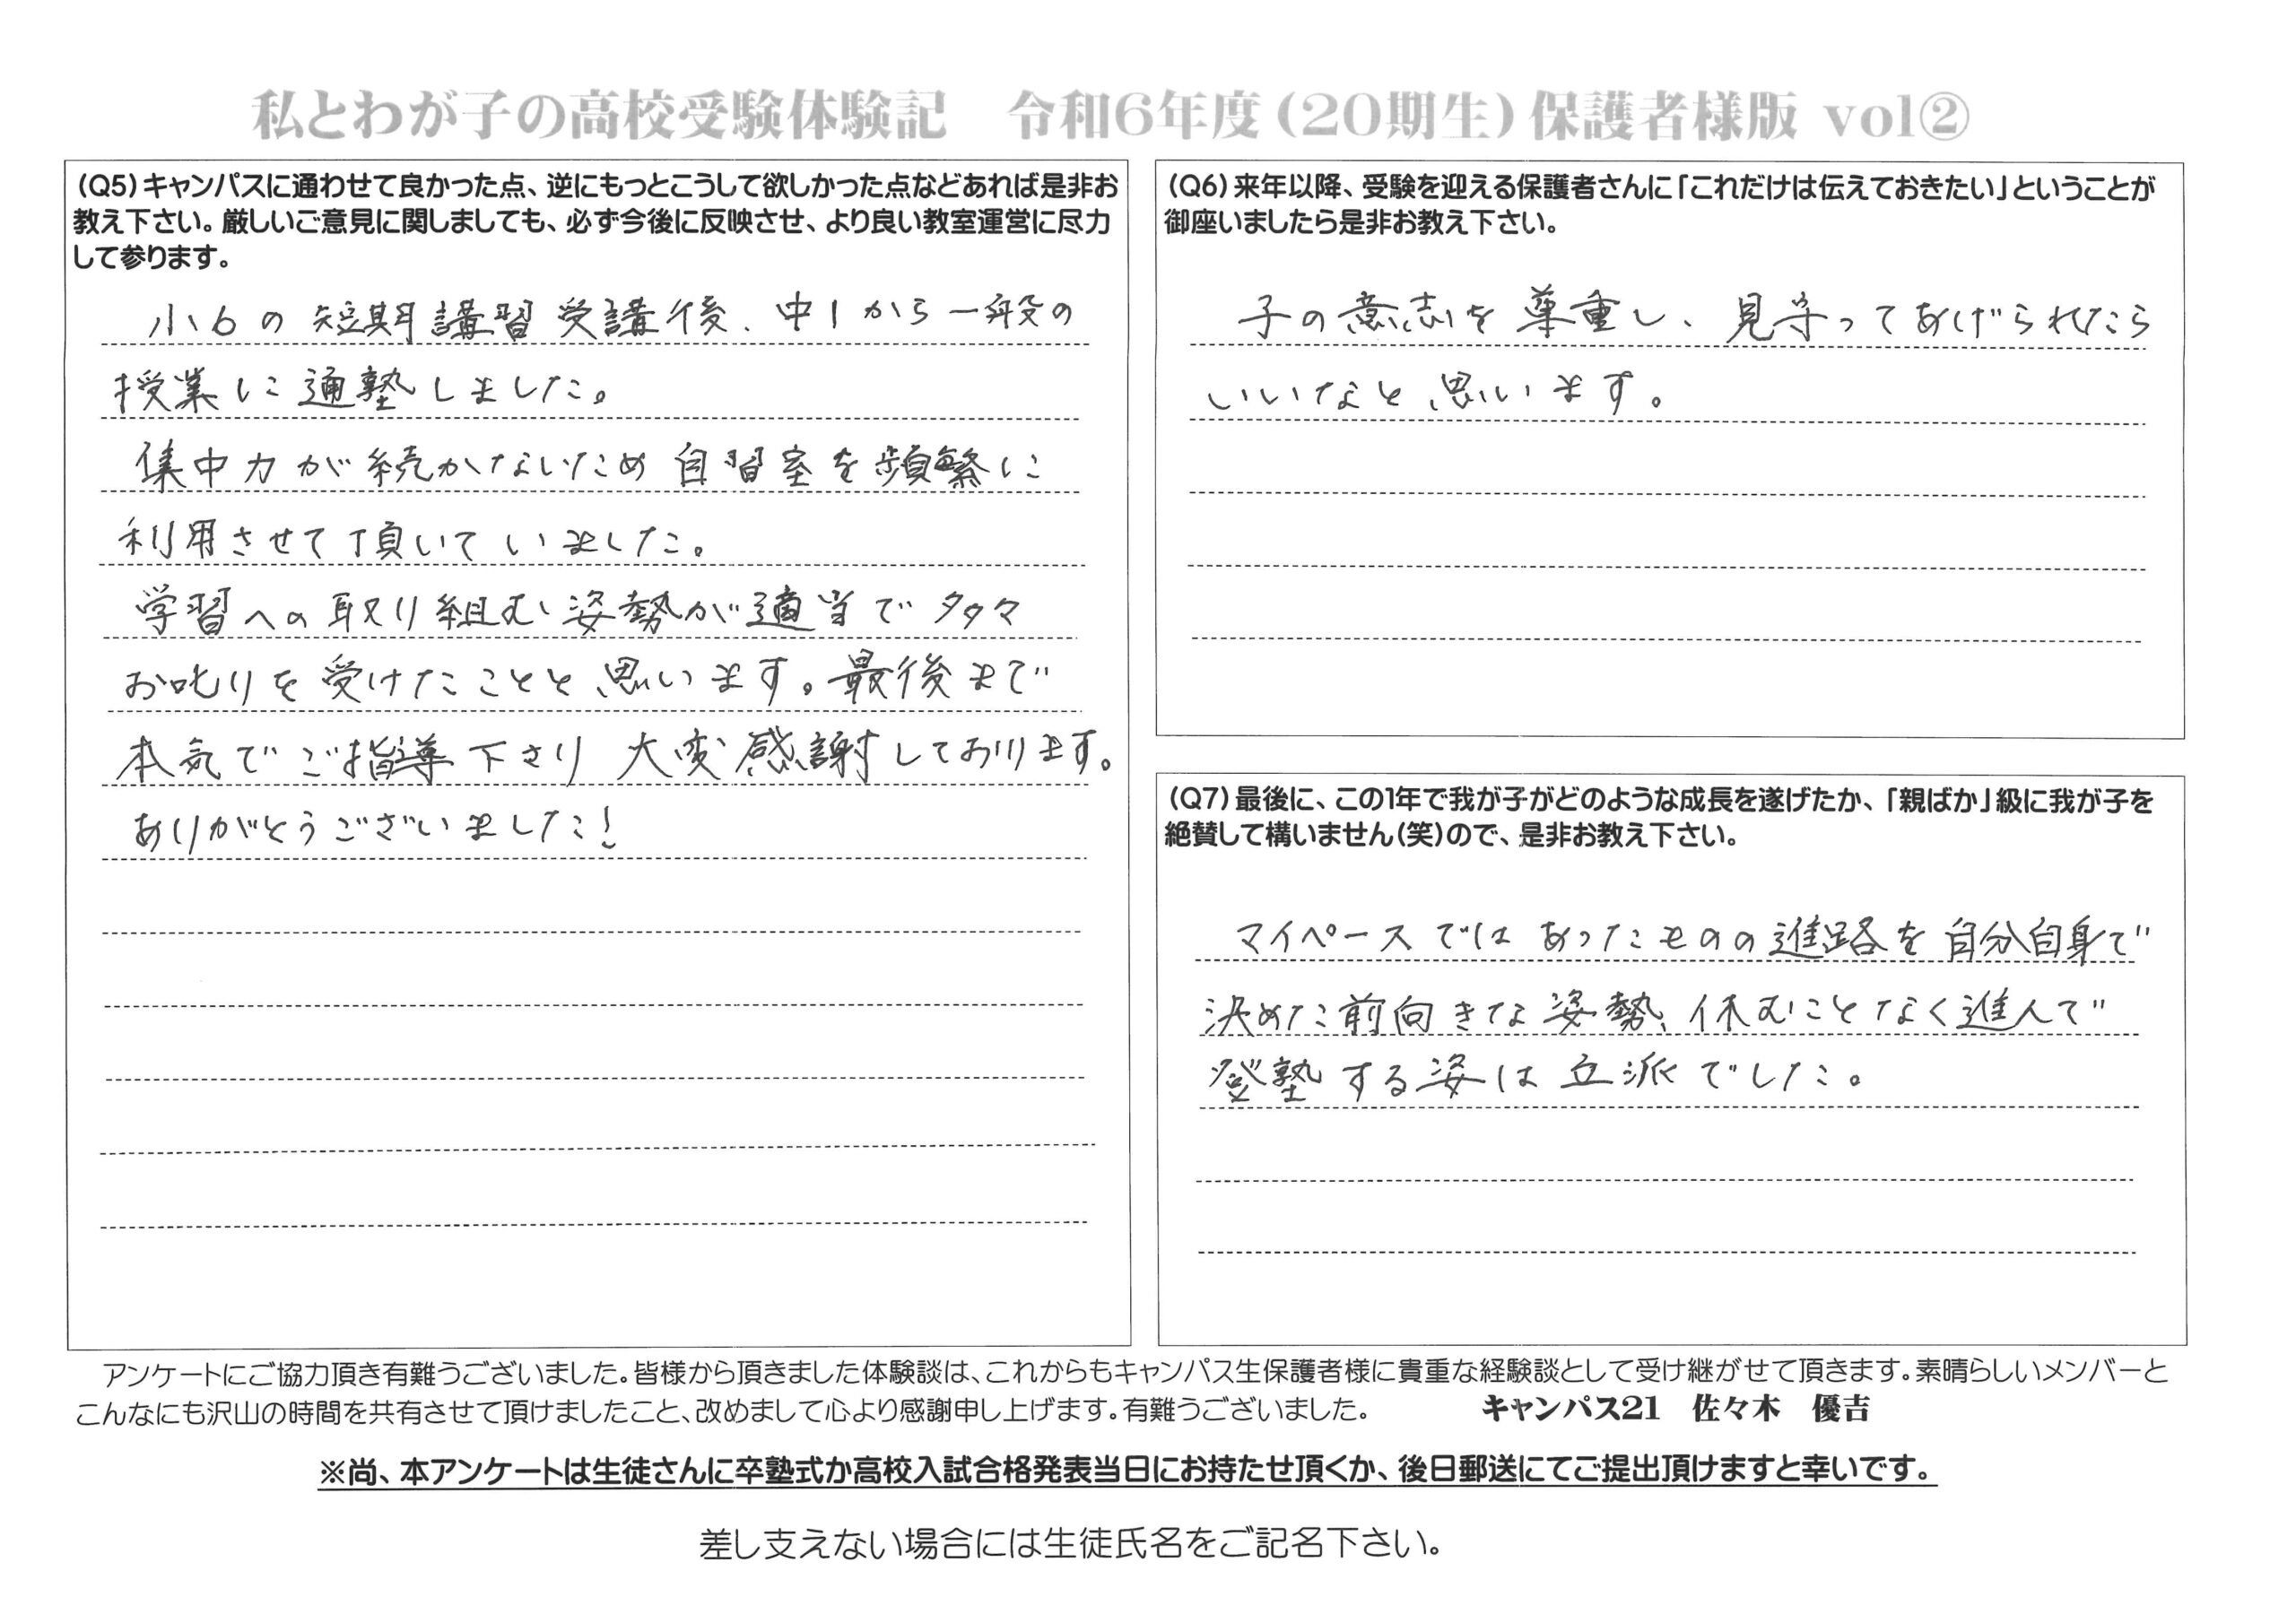 私とわが子の高校受験体験記　令和6年度(20期生)保護者様版 vol②
(Q5)キャンパスに通わせて良かった点、逆にもっとこうして欲しかった点などあれば是非お
教え下さい。厳しいご意見に関しましても、必ず今後に反映させ、より良い教室運営に尽力
して参ります。
小6の短期講習受講後、中1から一般の
授業に通塾しました。
集中力が続かないため自習室を頻繁に
利用させて頂いていました。
学習への取り組む姿勢が適当で多々
お叱りを受けたことと思います。最後まで
本気でご指導下さり大変感謝しております。
ありがとうございました!
(Q6)来年以降、受験を迎える保護者さんに「これだけは伝えておきたい」ということが
御座いましたら是非お教え下さい。
子の意志を尊重し、見守ってあげられたら
いいなと思います。
(Q7)最後に、この1年で我が子がどのような成長を遂げたか、「親ばか」級に我が子を
絶賛して構いません(笑)ので、是非お教え下さい。
マイペースではあったものの進路を自分自身で
決めた前向きな姿勢、休むことなく進んで
登塾する姿は立派でした。
アンケートにご協力頂き有難うございました。皆様から頂きました体験談は、これからもキャンパス生保護者様に貴重な経験談として受け継がせて頂きます。素晴らしいメンバーと
こんなにも沢山の時間を共有させて頂けましたこと、改めまして心より感謝申し上げます。有難うございました。　キャンパス21　佐々木　優吉
※尚、本アンケートは生徒さんに卒塾式か高校入試合格発表当日にお持たせ頂くか、後日郵送にてご提出頂けますと幸いです。
差し支えない場合には生徒氏名をご記名下さい。